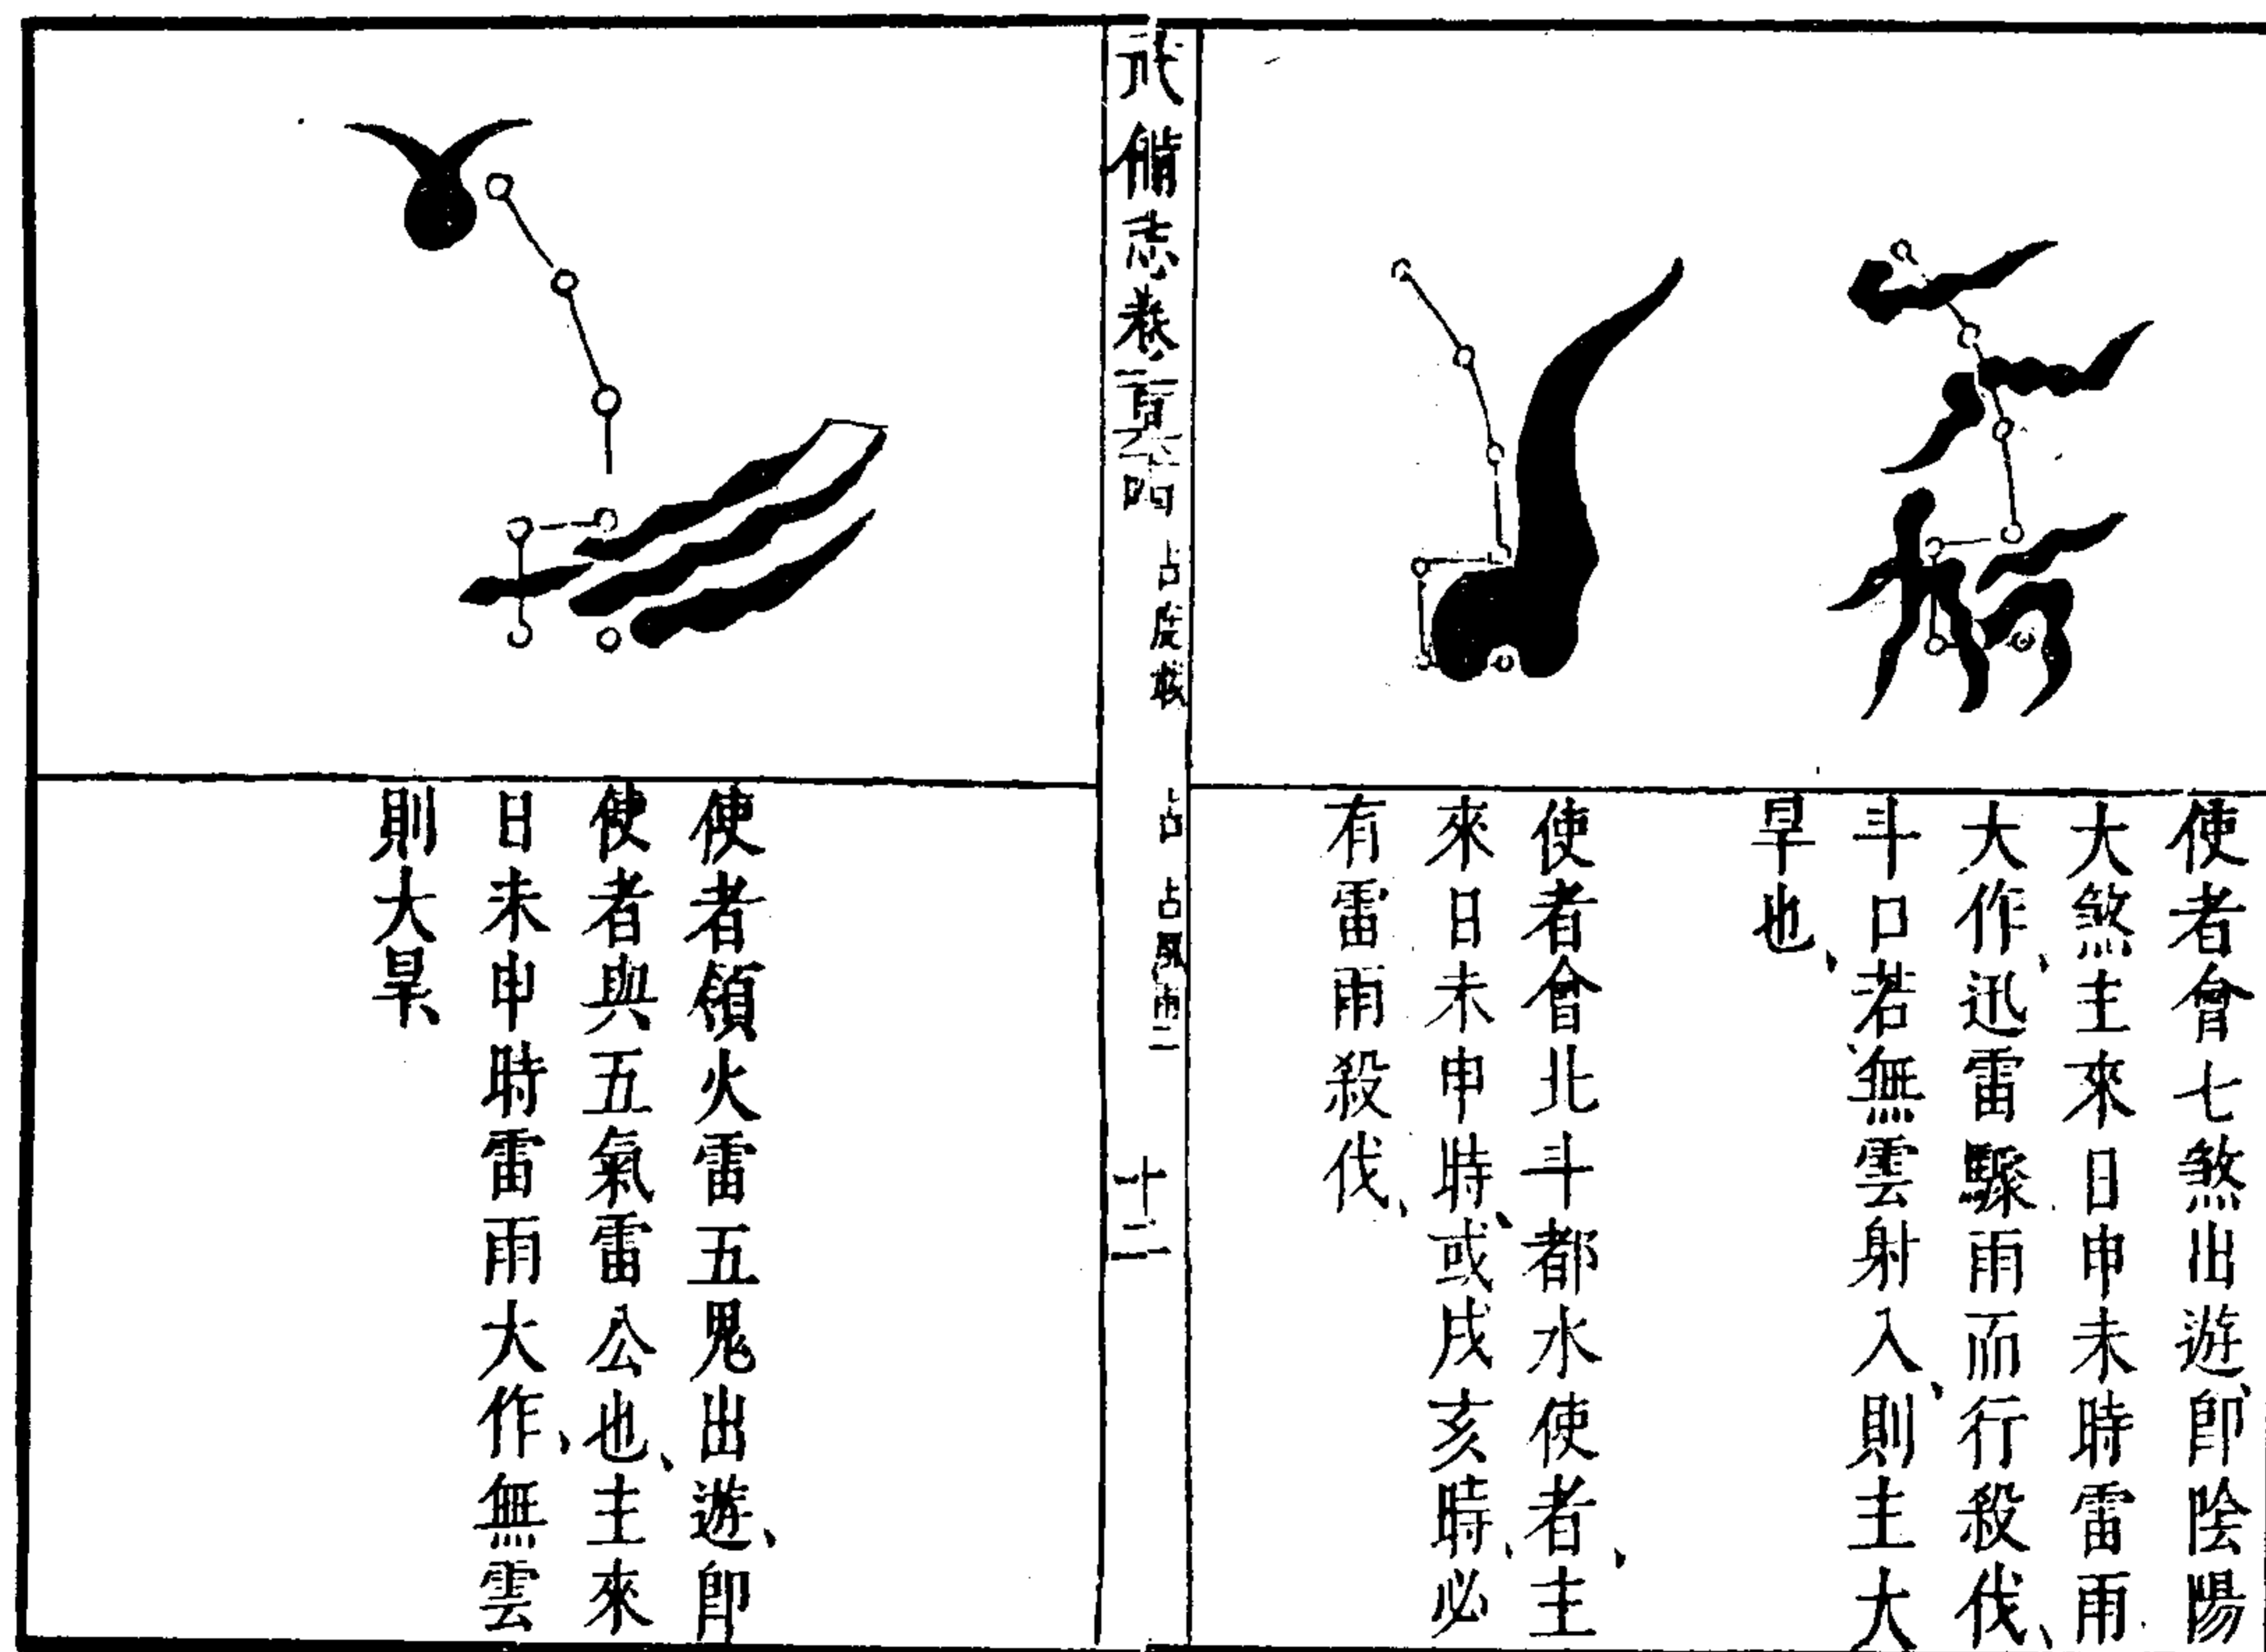 使者會七煞出遊、卽陰陽
大煞主來日申未時雷雨
大作、迅雷驟雨而行殺伐、
斗口若無雲射入、則主大
旱也、
使者會北斗都水使者、主
來日未申時、或戌亥時、必
有雷雨殺伐、
武備志卷一百六十四 占度載 占 占風雨二 十二
使者領火雷五鬼出遊、卽
使者與五氣雷公也、主來
日未申時雷雨大作、無雲
則大旱、